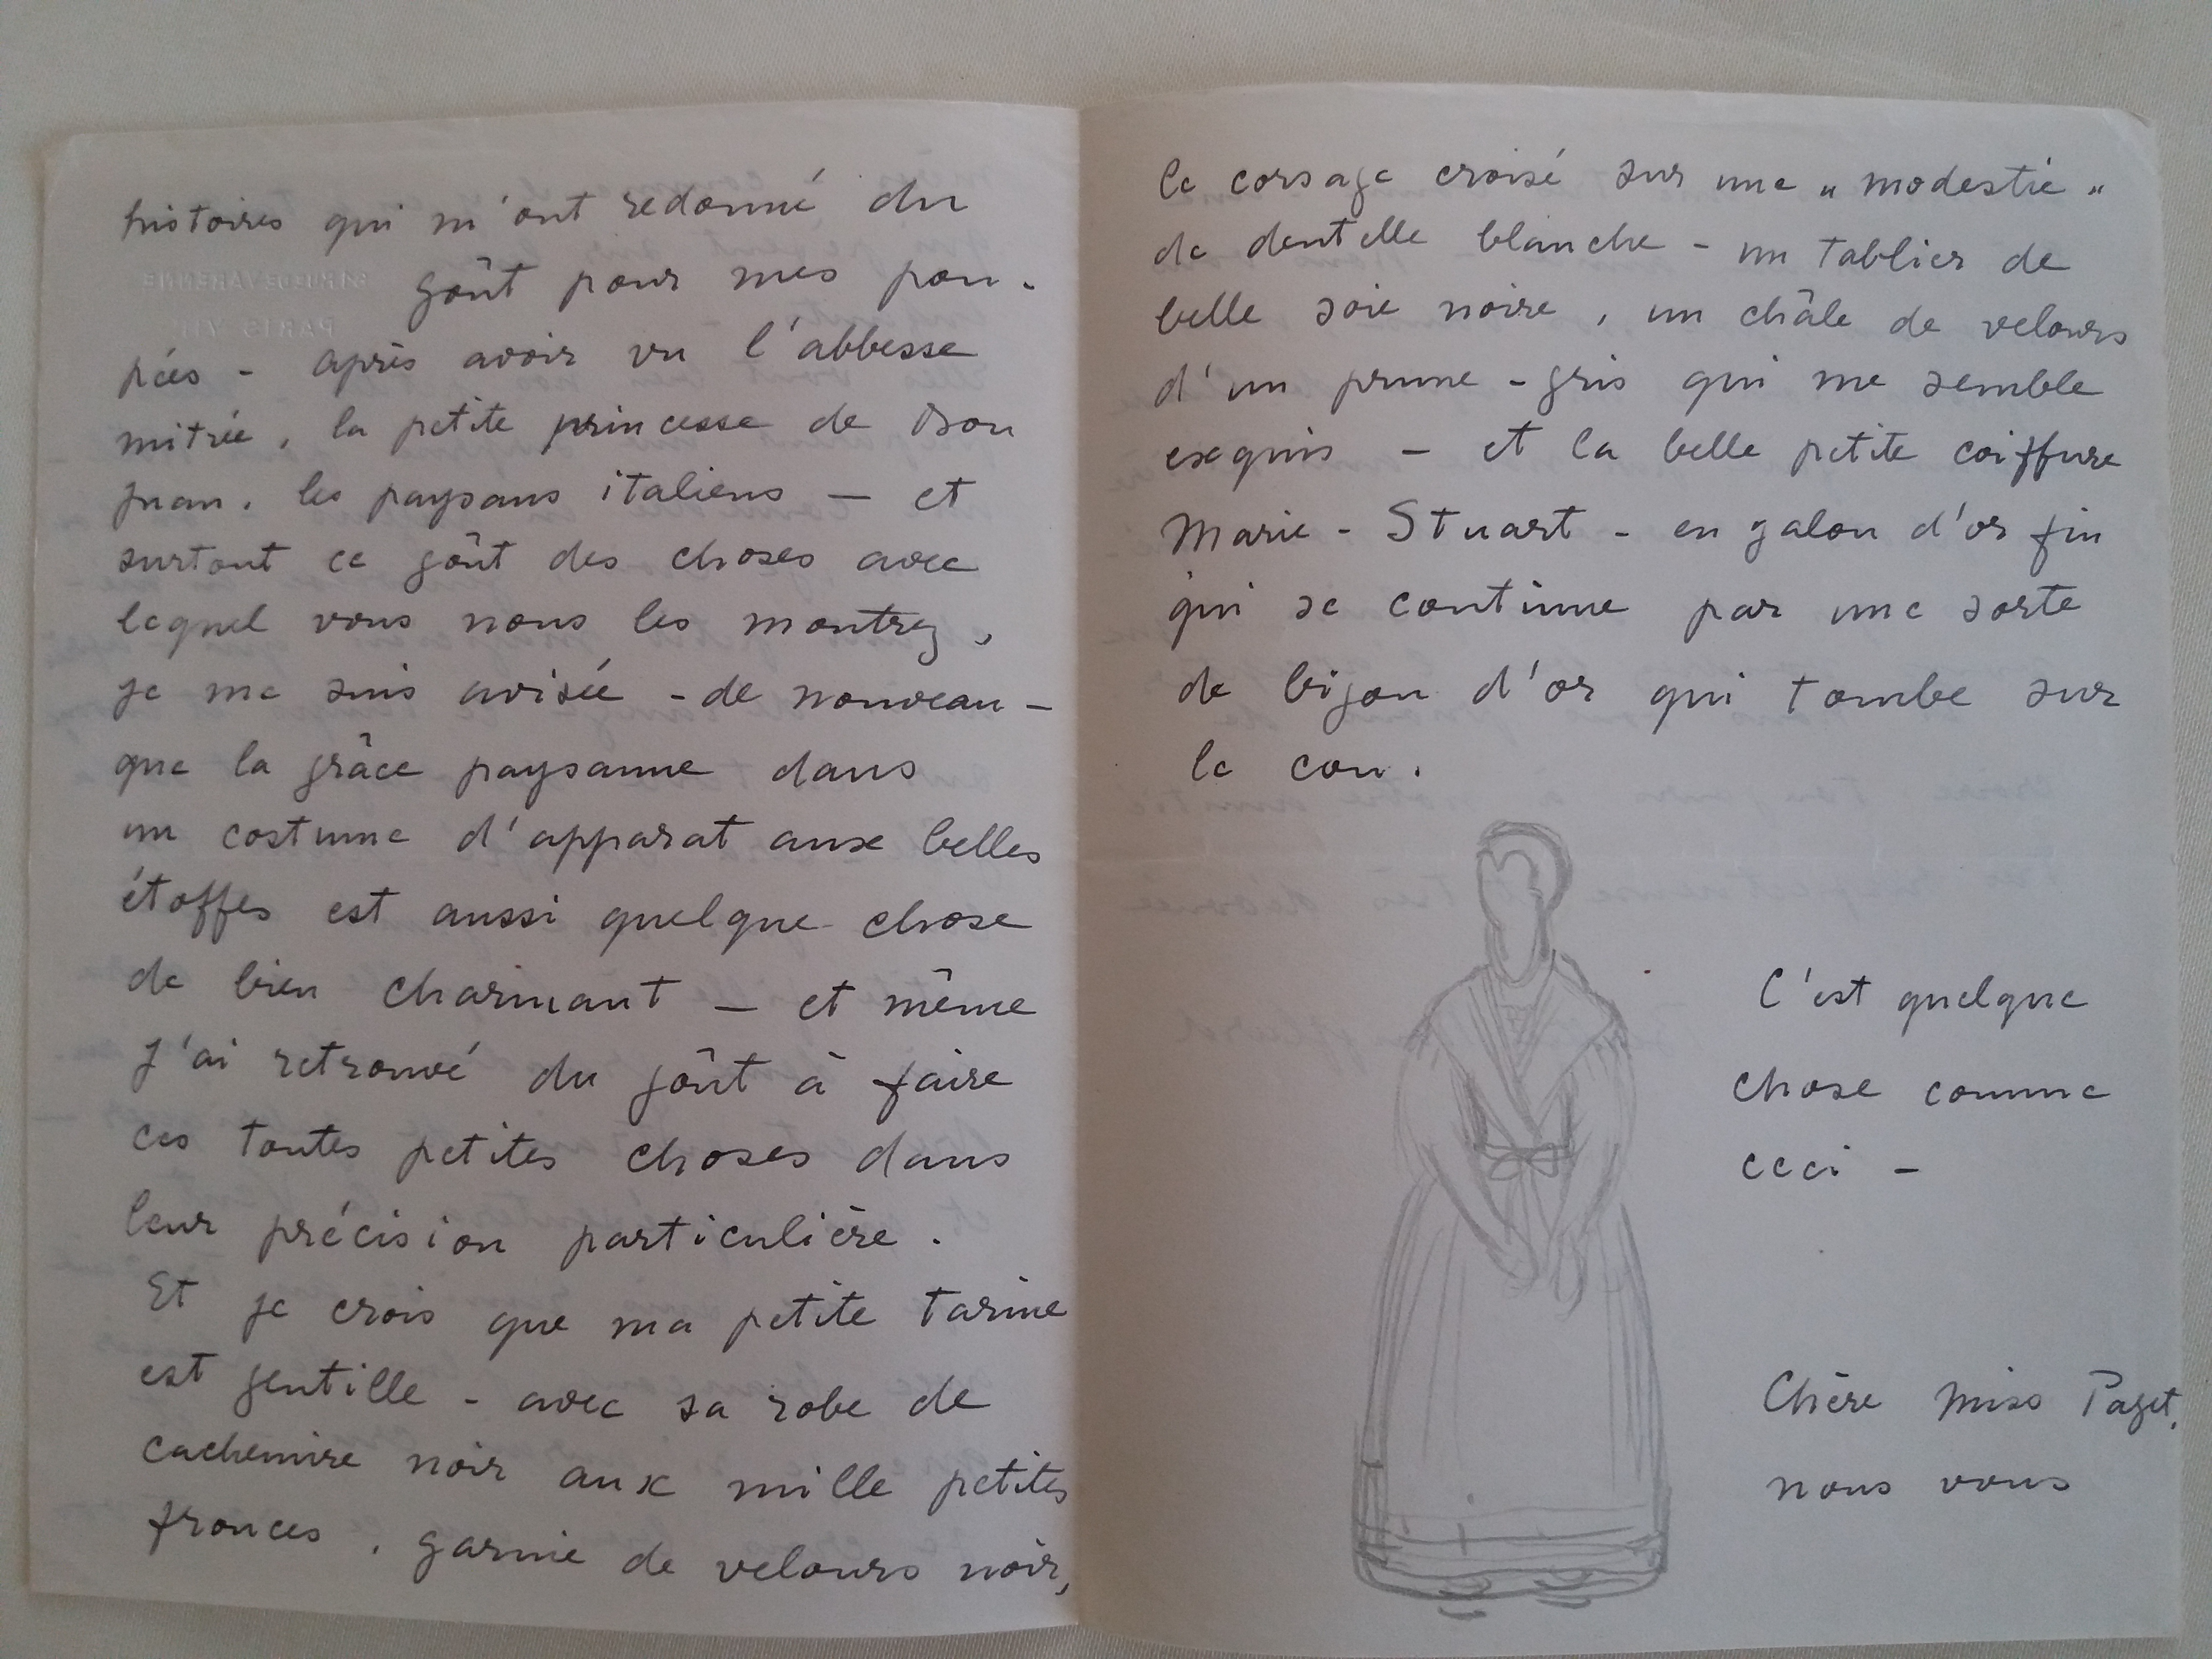 histoires qui m'ont redonné du
goût pour mes pou-
pées - après avoir vu l'abbesse
mitrée, la petite princesse de Don
Juan, les paysans italiens — et
surtout ce goût des choses avec
lequel vous nous les montrez,
je me suis avisée - de nouveau -
que la grâce paysanne dans
un costume d'apparat aux belles
étoffes est aussi quelque chose
de bien charmant — et même
j'ai retrouvé du goût à faire
ces toutes petites choses dans
leur précision particulière.
Et je crois que ma petite tarine
est gentille - avec sa robe de
cachemire noir aux mille petites
fronces, garnie de velours noir,
le corsage croisé sur une "modestie"
de dentelle blanche - un tablier de
belle soie noire, un châle de velours
d'un prune-gris qui me semble
exquis — et la belle petite coiffure
Marie-Stuart - en galon d'or fin
qui se continue par une sorte
de bijou d'or qui tombe sur
le cou.
C'est quelque
chose comme
ceci -
Chère Miss Paget,
nous vous